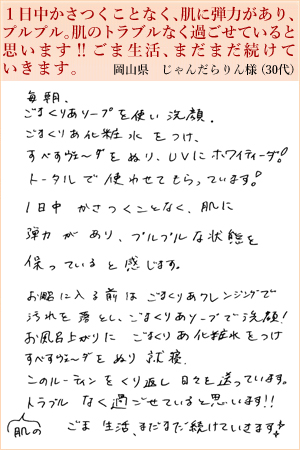 1日中かさつくことなく、肌に弾力があり、
プルプル。肌のトラブルなく過ごせていると
思います!!ごま生活、まだまだ続けて
いきます。 岡山県 じゃんだらりん様(30代)
毎朝、
ごまくりあソープを使い洗顔。
ごまくりあ化粧水をつけ、
すべすヴェーダをぬり、UVにホワイティーダ♪
トータルで使わせてもらっています♪
1日中かさつくことなく、肌に
弾力があり、プルプルな状態を
保っていると感じます。
お風呂に入る前はごまくりあクレンジングで
汚れを落とし、ごまくりあソープで洗顔!
お風呂上がりにごまくりあ化粧水をつけ
すべすヴェーダをぬり就寝。
このルーティンをくり返し日々を送っています。
トラブルなく過ごせていると思います!!
肌の
ごま生活、まだまだ続けていきます